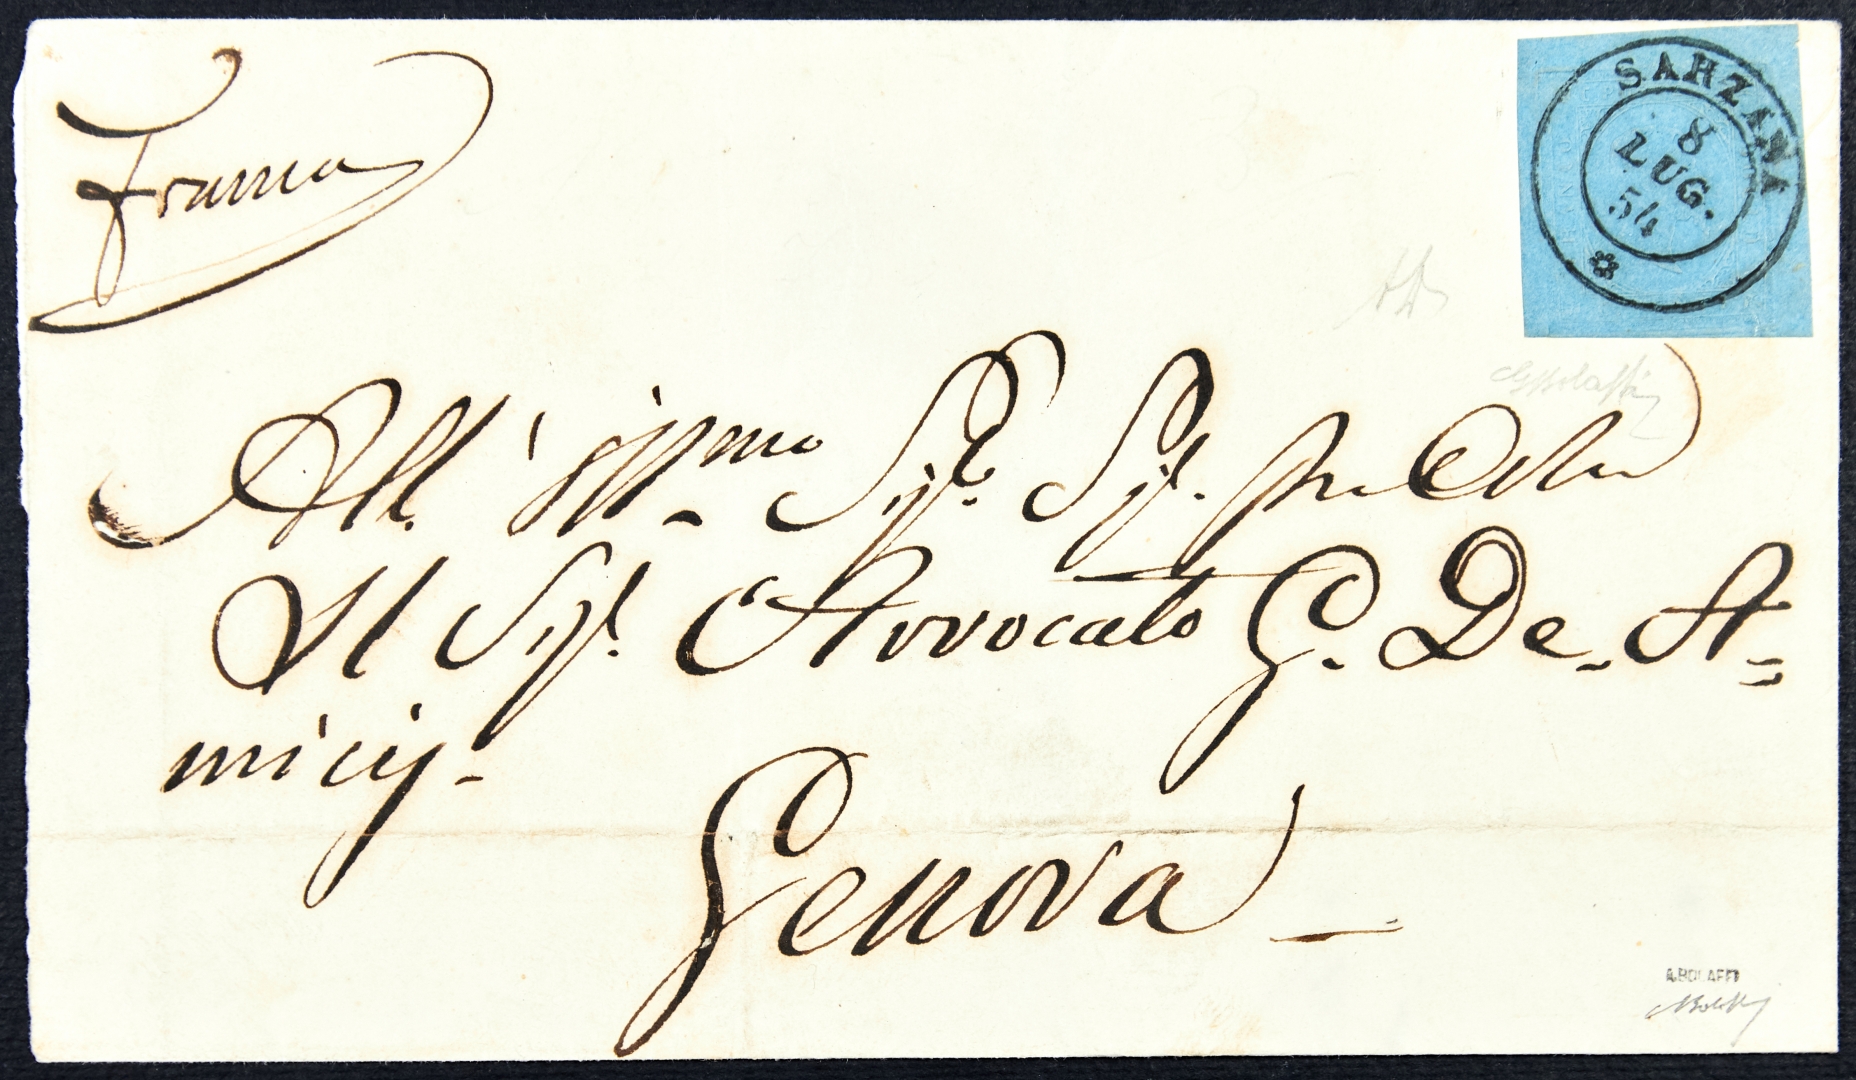 Franca
SARZANA
8
LUG.
54
All' Ill.ssimo Sig.r Sig.r Pre Colmo
Il Sig.r Avvocato G. De-A=
micij-
Genova-
A. BOLAFFI
ABolaffi